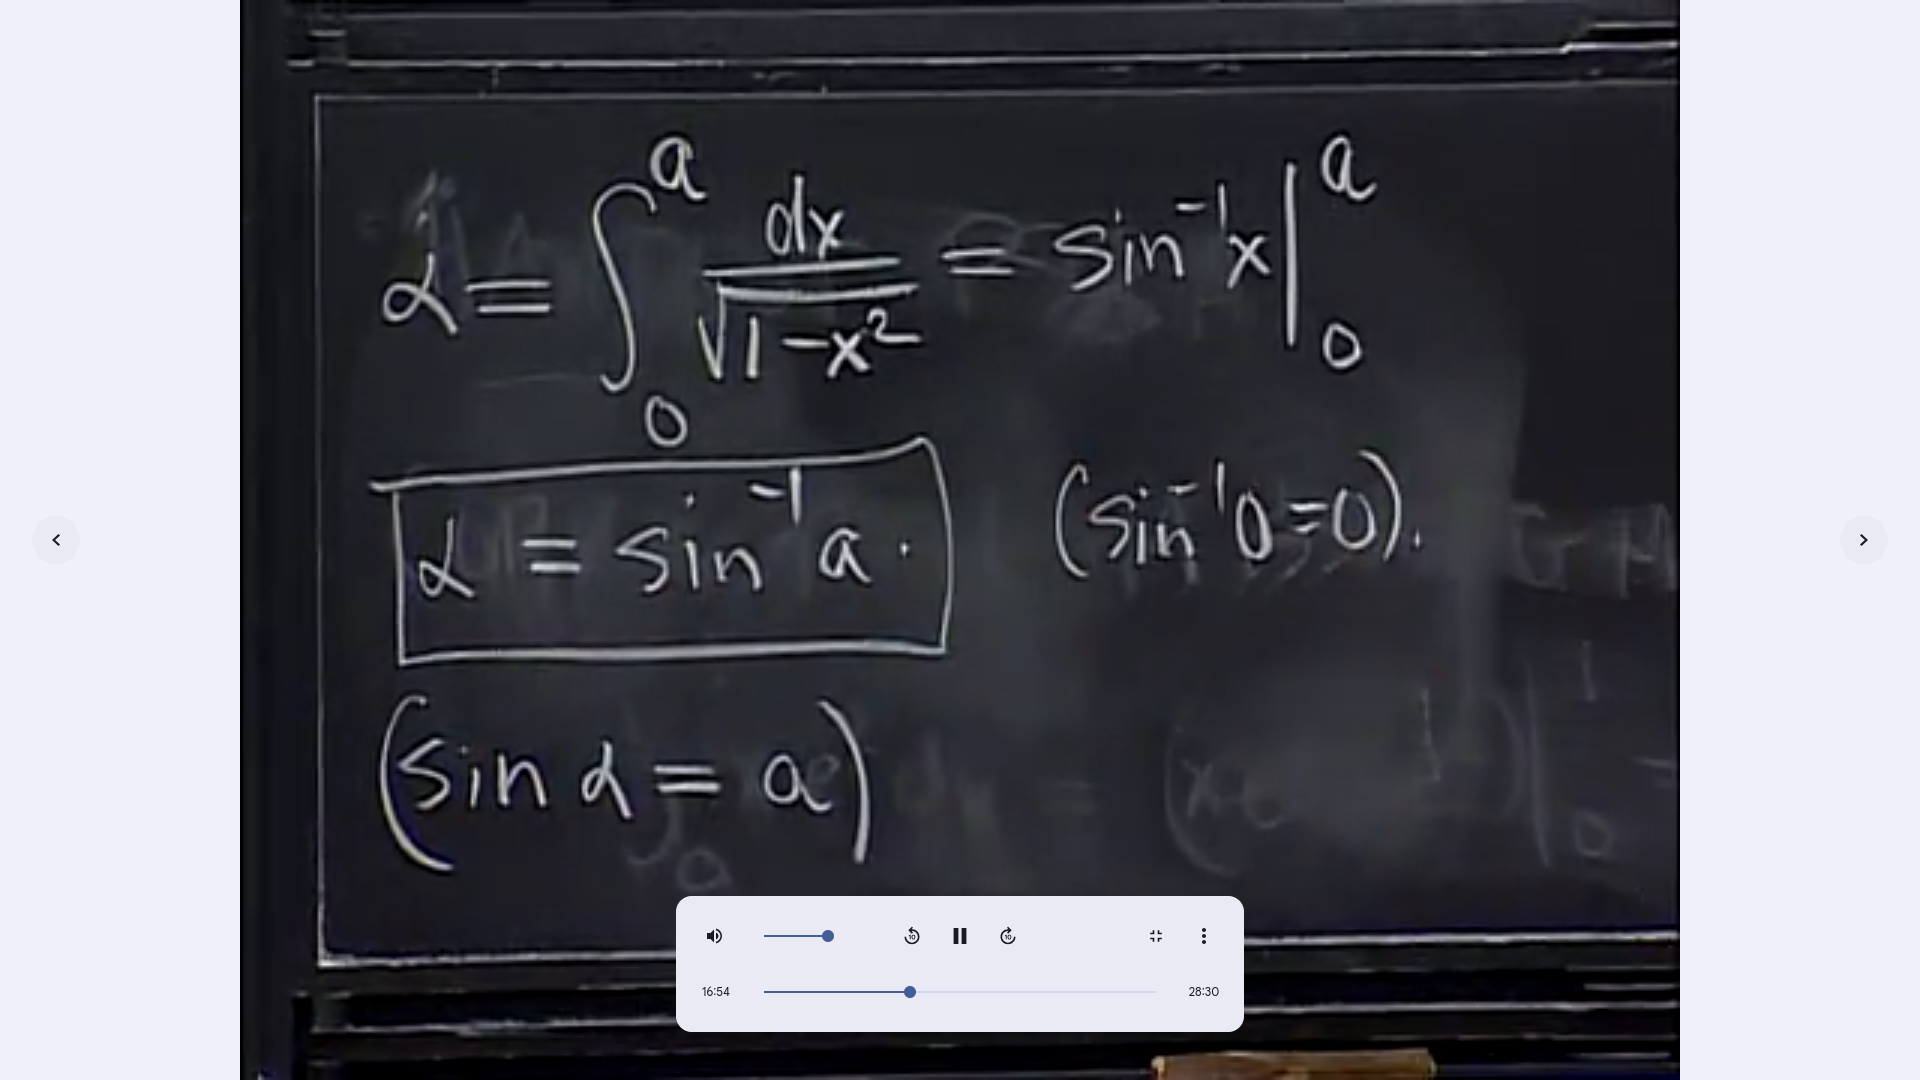 α = ∫₀ᵃ dx/√(1-x²) = sin⁻¹x |₀ᵃ
α = sin⁻¹ a. (sin⁻¹ 0 = 0).
(sin α = a)
10 10
16:54 28:30